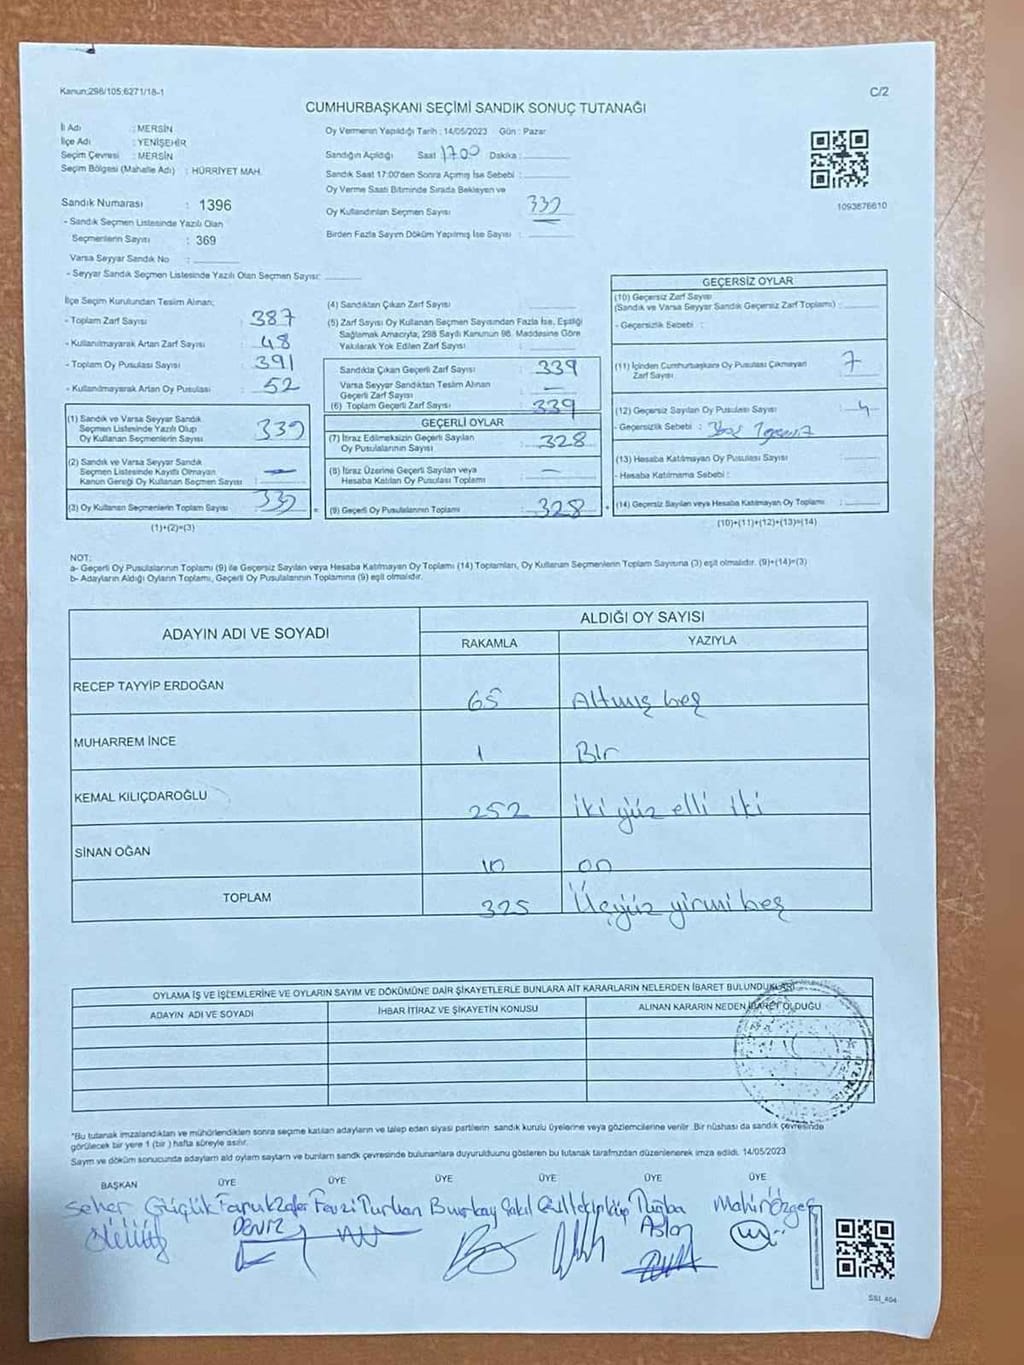 Kanun:298/105;6271/18-1
C/2
CUMHURBAŞKANI SEÇİMİ SANDIK SONUÇ TUTANAĞI
İl Adı : MERSİN
İlçe Adı : YENİŞEHİR
Seçim Çevresi : MERSİN
Seçim Bölgesi (Mahalle Adı) : HÜRRİYET MAH.
Sandık Numarası : 1396
- Sandık Seçmen Listesinde Yazılı Olan
Seçmenlerin Sayısı : 369
Varsa Seyyar Sandık No :
- Seyyar Sandık Seçmen Listesinde Yazılı Olan Seçmen Sayısı:
Oy Vermenin Yapıldığı Tarih : 14/05/2023 Gün : Pazar
Sandığın Açıldığı Saat 17:00 Dakika :
Sandık Saat 17:00'den Sonra Açımış İse Sebebi :
Oy Verme Saati Bitiminde Sırada Bekleyen ve
Oy Kullandırılan Seçmen Sayısı : 339
Birden Fazla Sayım Döküm Yapılmış İse Sayısı :
1093876610
İlçe Seçim Kurulundan Teslim Alınan;
- Toplam Zarf Sayısı : 387
- Kullanılmayarak Artan Zarf Sayısı : 48
- Toplam Oy Pusulası Sayısı : 391
- Kullanılmayarak Artan Oy Pusulası : 52
(1) Sandık ve Varsa Seyyar Sandık
Seçmen Listesinde Yazılı Olup
Oy Kullanan Seçmenlerin Sayısı : 339
(2) Sandık ve Varsa Seyyar Sandık
Seçmen Listesinde Kayıtlı Olmayan
Kanun Gereği Oy Kullanan Seçmen Sayısı : —
(3) Oy Kullanan Seçmenlerin Toplam Sayısı : 339
(1)+(2)=(3)
(4) Sandıktan Çıkan Zarf Sayısı :
(5) Zarf Sayısı Oy Kullanan Seçmen Sayısından Fazla İse, Eşitliği
Sağlamak Amacıyla; 298 Sayılı Kanunun 98. Maddesine Göre
Yakılarak Yok Edilen Zarf Sayısı :
Sandıkta Çıkan Geçerli Zarf Sayısı : 339
Varsa Seyyar Sandıktan Teslim Alınan
Geçerli Zarf Sayısı : —
(6) Toplam Geçerli Zarf Sayısı : 339
GEÇERLİ OYLAR
(7) İtiraz Edilmeksizin Geçerli Sayılan
Oy Pusulalarının Sayısı : 328
(8) İtiraz Üzerine Geçerli Sayılan veya
Hesaba Katılan Oy Pusulası Toplamı : —
(9) Geçerli Oy Pusulalarının Toplamı : 328
GEÇERSİZ OYLAR
(10) Geçersiz Zarf Sayısı
(Sandık ve Varsa Seyyar Sandık Geçersiz Zarf Toplamı) :
- Geçersizlik Sebebi :
(11) İçinden Cumhurbaşkanı Oy Pusulası Çıkmayan
Zarf Sayısı : 7
(12) Geçersiz Sayılan Oy Pusulası Sayısı : 4
- Geçersizlik Sebebi :
(13) Hesaba Katılmayan Oy Pusulası Sayısı :
- Hesaba Katılmama Sebebi :
(14) Geçersiz Sayılan veya Hesaba Katılmayan Oy Toplamı :
(10)+(11)+(12)+(13)=(14)
NOT:
a- Geçerli Oy Pusulalarının Toplamı (9) ile Geçersiz Sayılan veya Hesaba Katılmayan Oy Toplamı (14) Toplamları, Oy Kullanan Seçmenlerin Toplam Sayısına (3) eşit olmalıdır. (9)+(14)=(3)
b- Adayların Aldığı Oyların Toplamı, Geçerli Oy Pusulalarının Toplamına (9) eşit olmalıdır.
ADAYIN ADI VE SOYADI
ALDIĞI OY SAYISI
RAKAMLA YAZIYLA
RECEP TAYYİP ERDOĞAN 65 Altmış beş
MUHARREM İNCE 1 Bir
KEMAL KILIÇDAROĞLU 252 İki yüz elli iki
SİNAN OĞAN 10 on
TOPLAM 325 Üçyüz yirmi beş
OYLAMA İŞ VE İŞLEMLERİNE VE OYLARIN SAYIM VE DÖKÜMÜNE DAİR ŞİKAYETLERLE BUNLARA AİT KARARLARIN NELERDEN İBARET BULUNDUKLARI
ADAYIN ADI VE SOYADI İHBAR İTİRAZ VE ŞİKAYETİN KONUSU ALINAN KARARIN NEDEN İBARET OLDUĞU
*Bu tutanak imzalandıktan ve mühürlendikten sonra seçime katılan adayların ve talep eden siyasi partilerin sandık kurulu üyelerine veya gözlemcilerine verilir .Bir nüshası da sandık çevresinde
görülecek bir yere 1 (bir ) hafta süreyle asılır.
Sayım ve döküm sonucunda adayların aldı oyların sayıları ve bunların sandık çevresinde bulunanlara duyurulduunu gösteren bu tutanak tarafımzdan düzenlenerek imza edildi. 14/05/2023
BAŞKAN ÜYE ÜYE ÜYE ÜYE ÜYE ÜYE
Seher Güçlük Faruk Zafer Fevzi Turhan Burkay Tuğba Mahir Özgeç
DENİZ Aslan
SSI_404